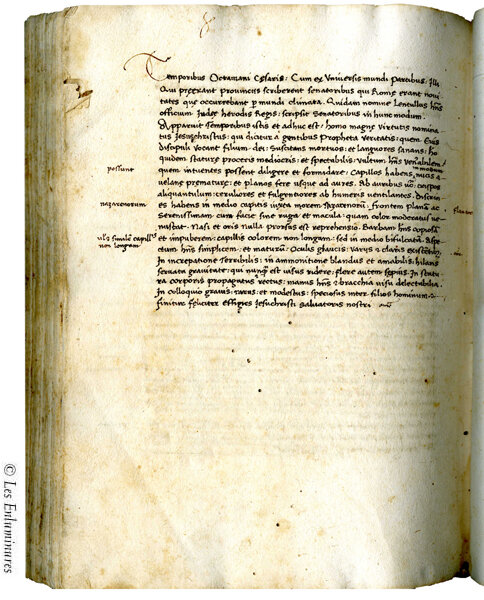 Temporibus Octaviani Cesaris: Cum ex Universis mundi Partibus: Illi
Qui preerant Provinciis scriberent senatoribus qui Rome erant novi
tates que occurrebant p mundi climata. Quidam nomine Lentullus hñs
officium Iudee herodis Regis: scripsit Senatoribus in hunc modum.
Apparuit Temporibus istis et adhuc est: homo magne Virtutis nomina
tus Iesus christus: qui dicitur a gentibus Propheta Veritatis: quem Eius
discipuli vocant filium: dei: Suscitans mortuos: et languores sanans: ho
quidem stature proceris mediocris: et spectabilis: Vultum: hñs Venerabilem
possunt
quem intuentes possent diligere et formidare: Capillos habens, nucis a
velane premature: et planos fere usque ad aures. Ab auribus
aliquantulum: ceruliores et fulgentiores ab humeris ventilantes. Discrim
nazarenorum
es habens in medio capitis iuxta morem frontem planam ac
Serenissimam: cum facie sine ruga et macula: quam color moderatus ve
nustat. Nasi et oris nulla prorsus est reprehensio. Barbam hñs copiosam
et impuberem: capillis colorem non longam: sed in medio bifulcatam. Aspe
non longam
ctum hñs simplicem: et maturum: Oculis glaucis: Variis: et claris existentibus.
In increpatione terribilis: in ammonitione blandus et amabilis: hilaris
servata gravitate: qui nunquam est visus ridere: flere autem sepius: In statu
ra corporis propagatus rectus: manus hñs et bracchia visu delectabilia.
In colloquio gravis: rarus: et modestus: speciosus inter filios hominum:
finitur feliciter effigies Iesu christi salvatoris nostri
© Les Enluminures